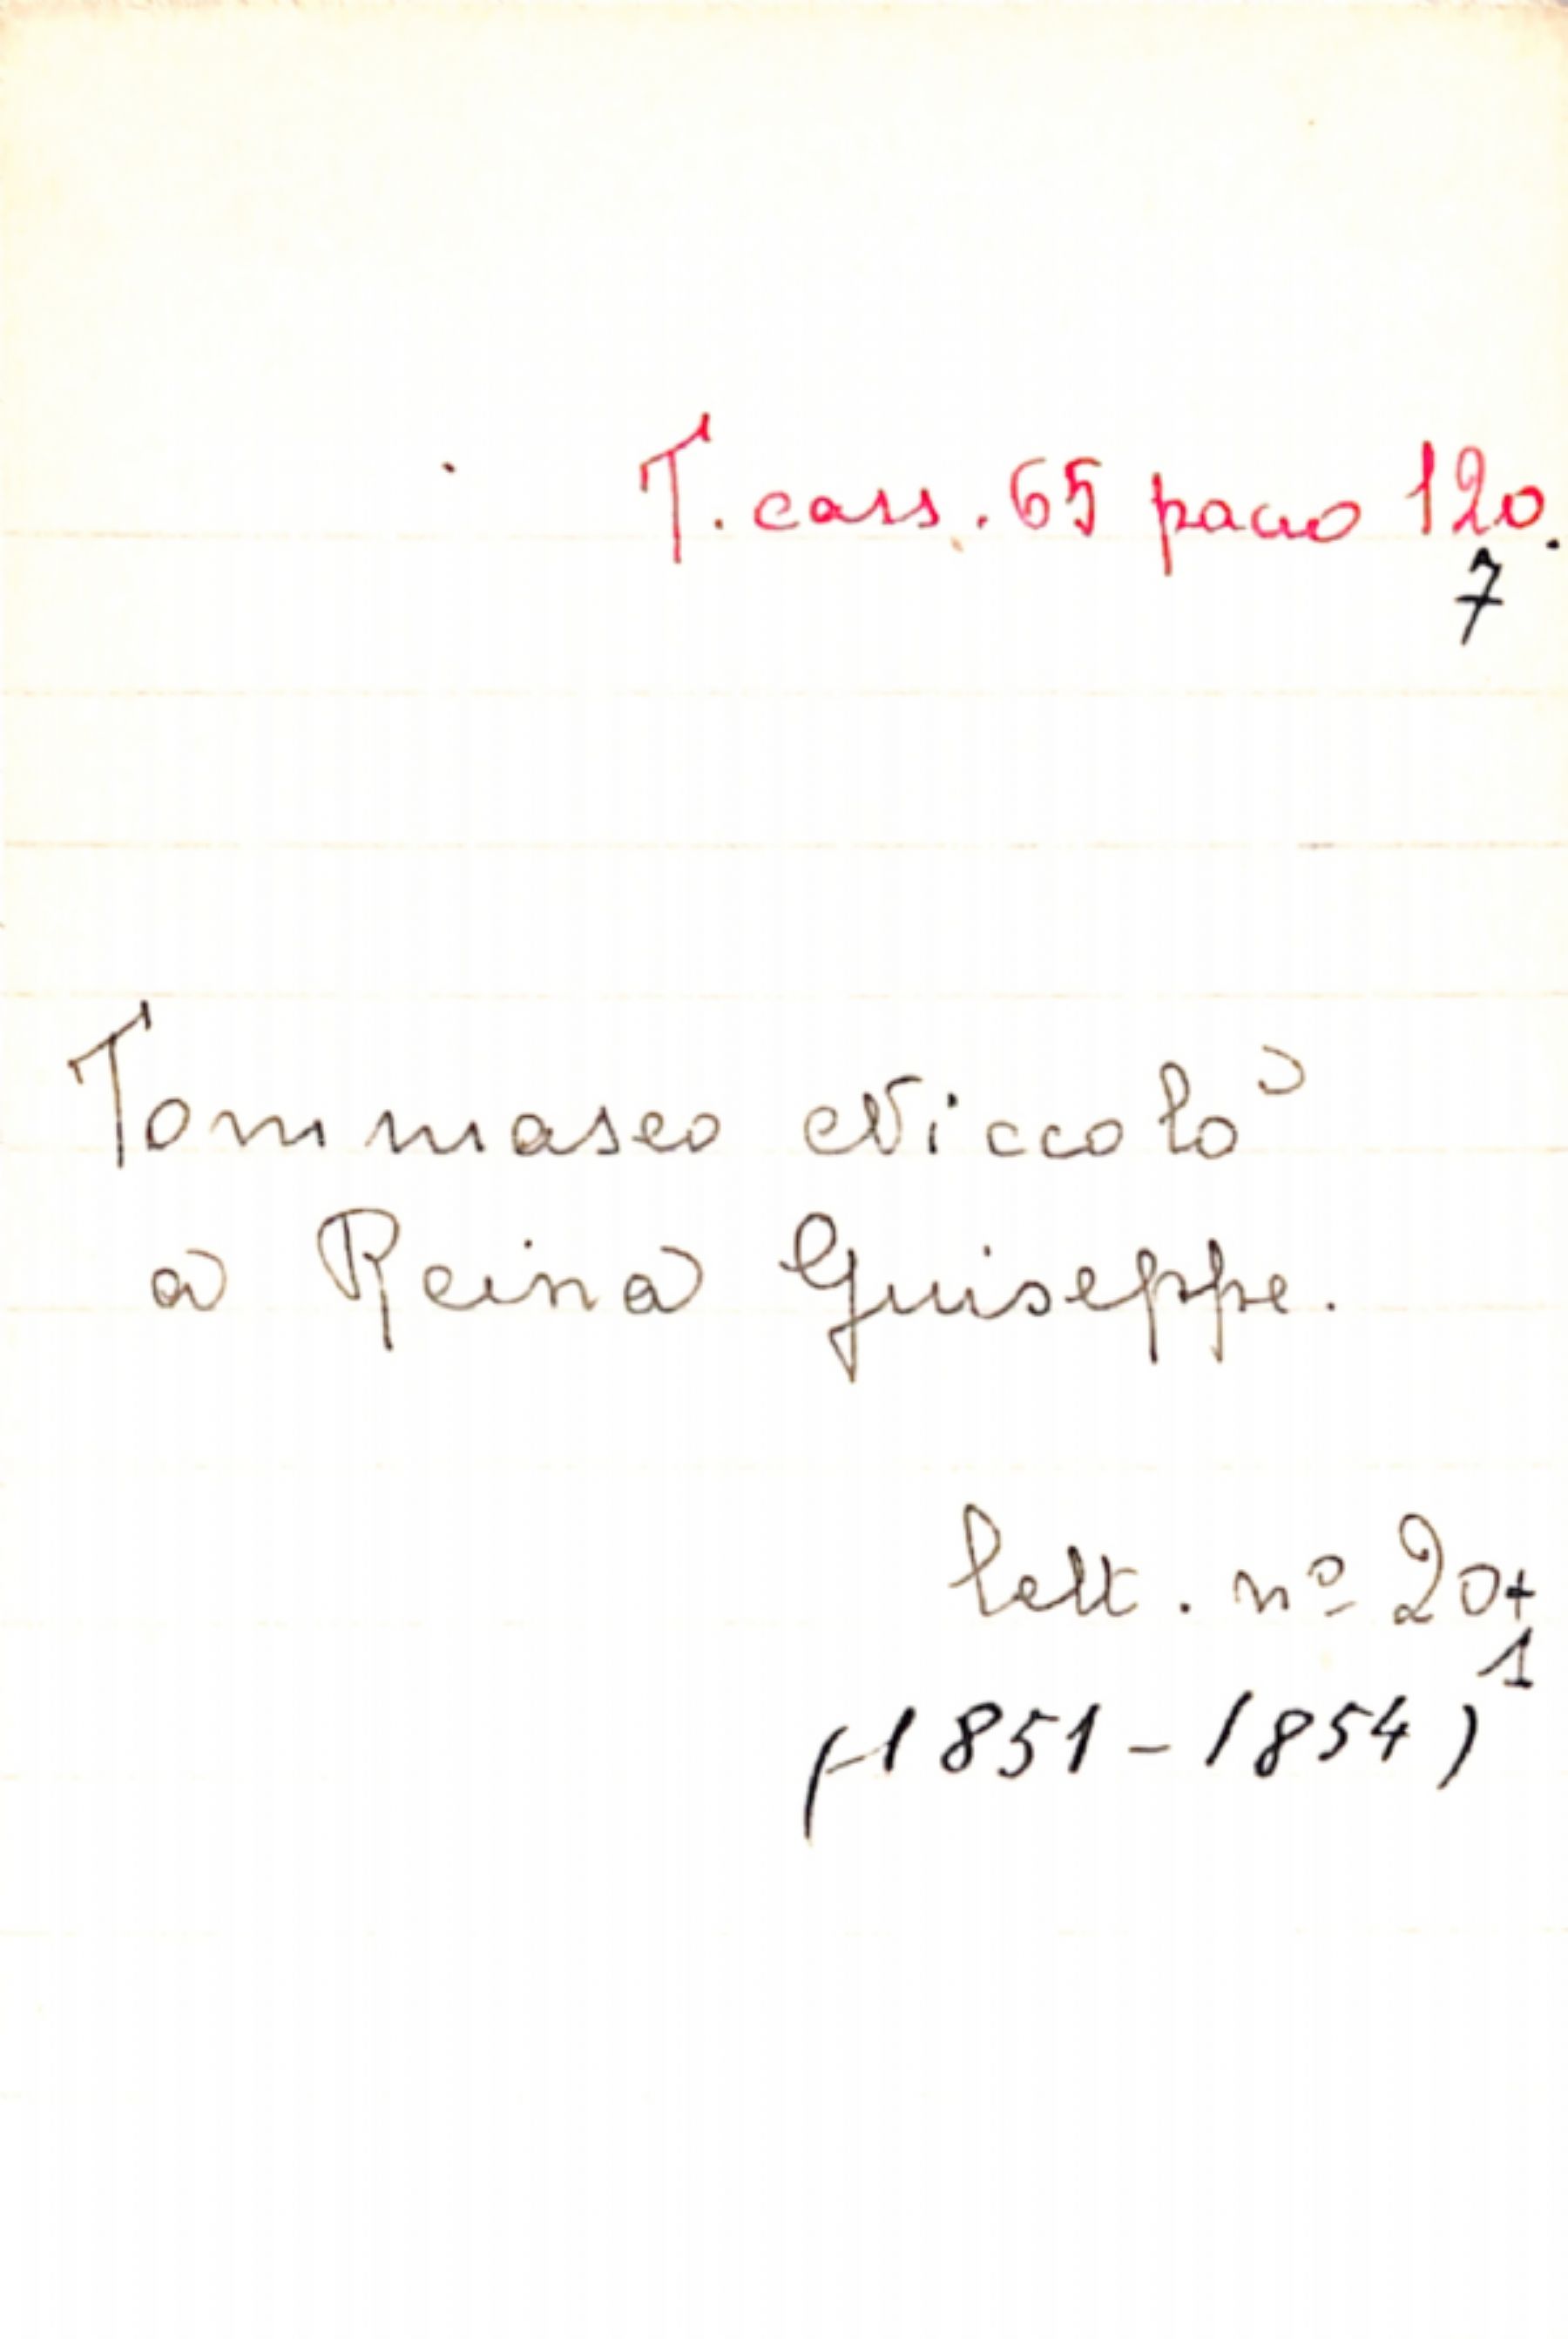 T. cass. 65 pacco 120.
7
Tommaseo Niccolò
a Reina Giuseppe.
lett. nº 20+
1
(1851-1854)